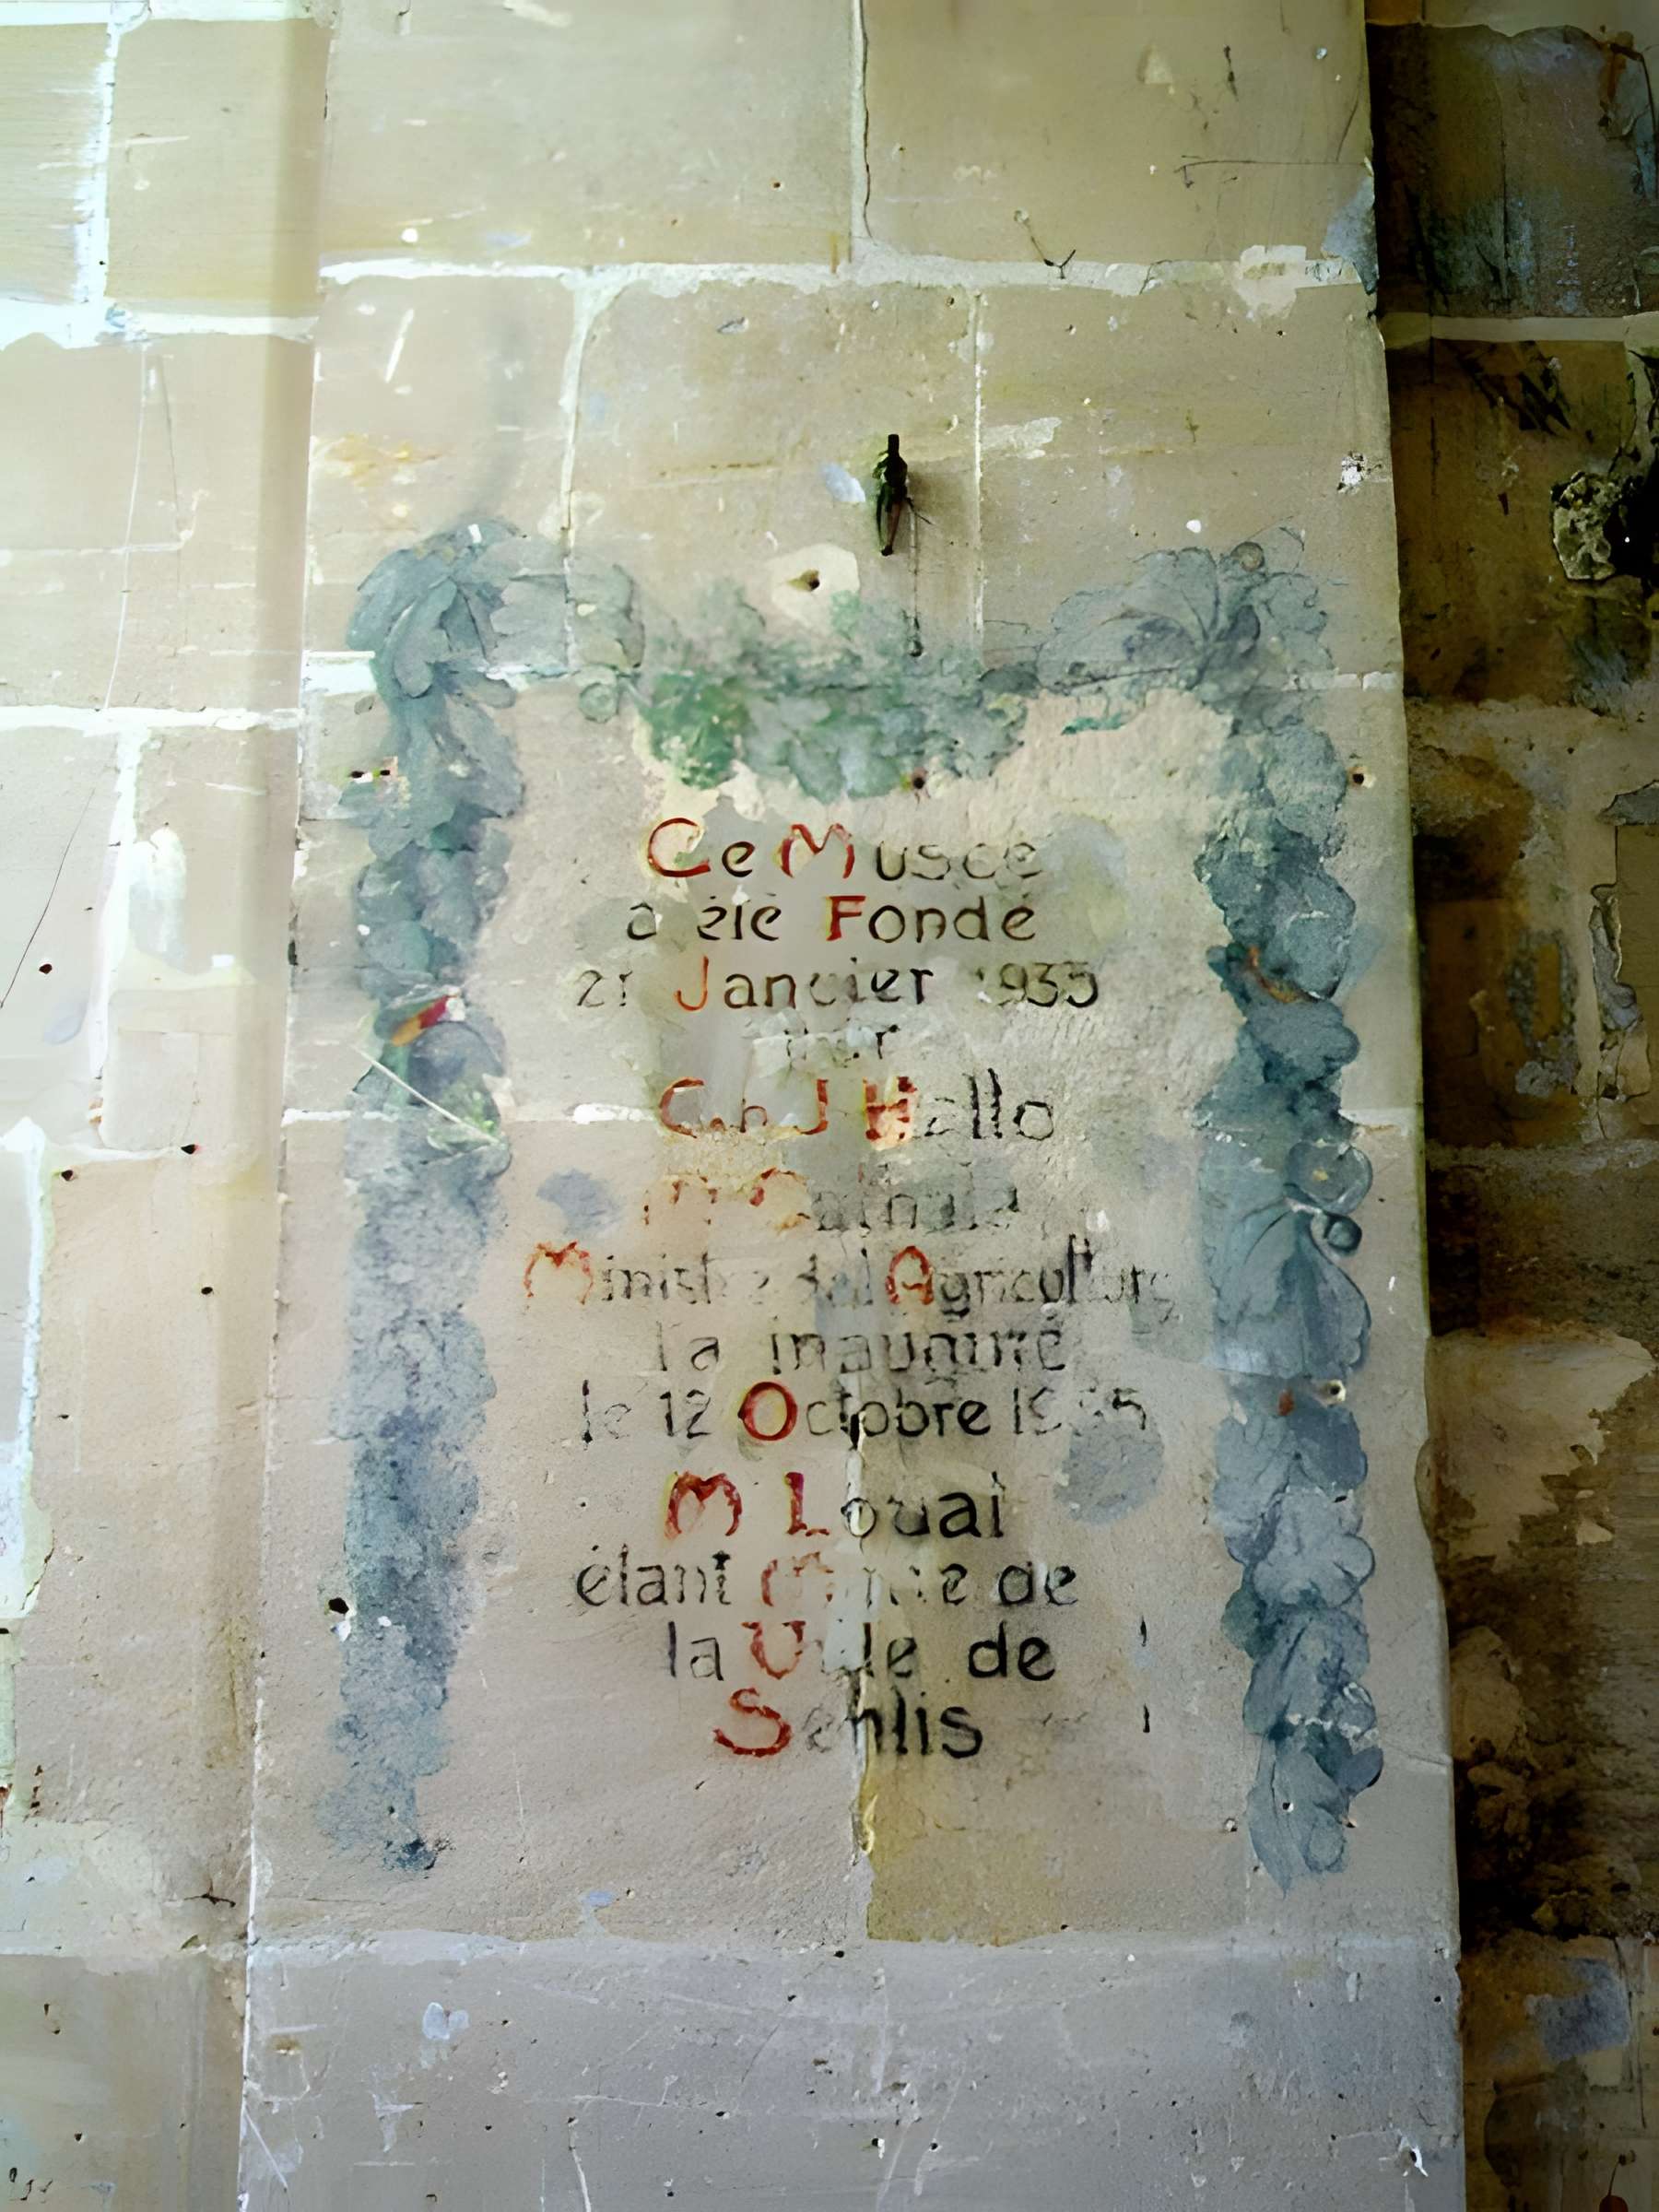 Ce Musée
a été Fondé
21 Janvier 1935
par
Ch J Hallo
M Cathala
Ministre de l'Agriculture
l'a inauguré
le 12 Octobre 1935
M Louat
étant Maire de
la Ville de
Senlis